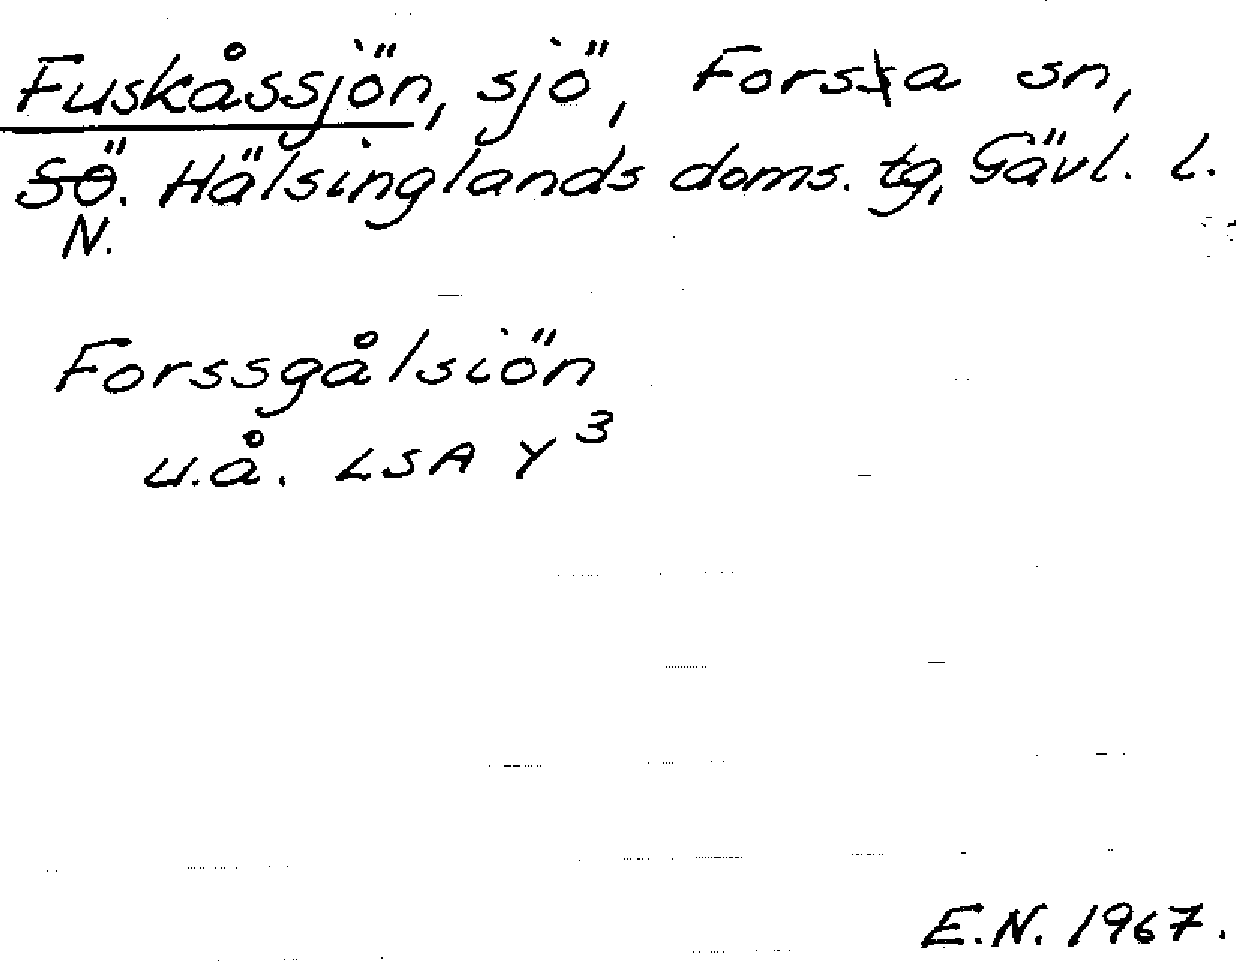 Fuskåssjön, sjö, Forsa sn,
Sö. Hälsinglands doms. tg, Gävl. l.
N.
Forssgålsiön
u.å. LSA Y 3
E.N. 1967.